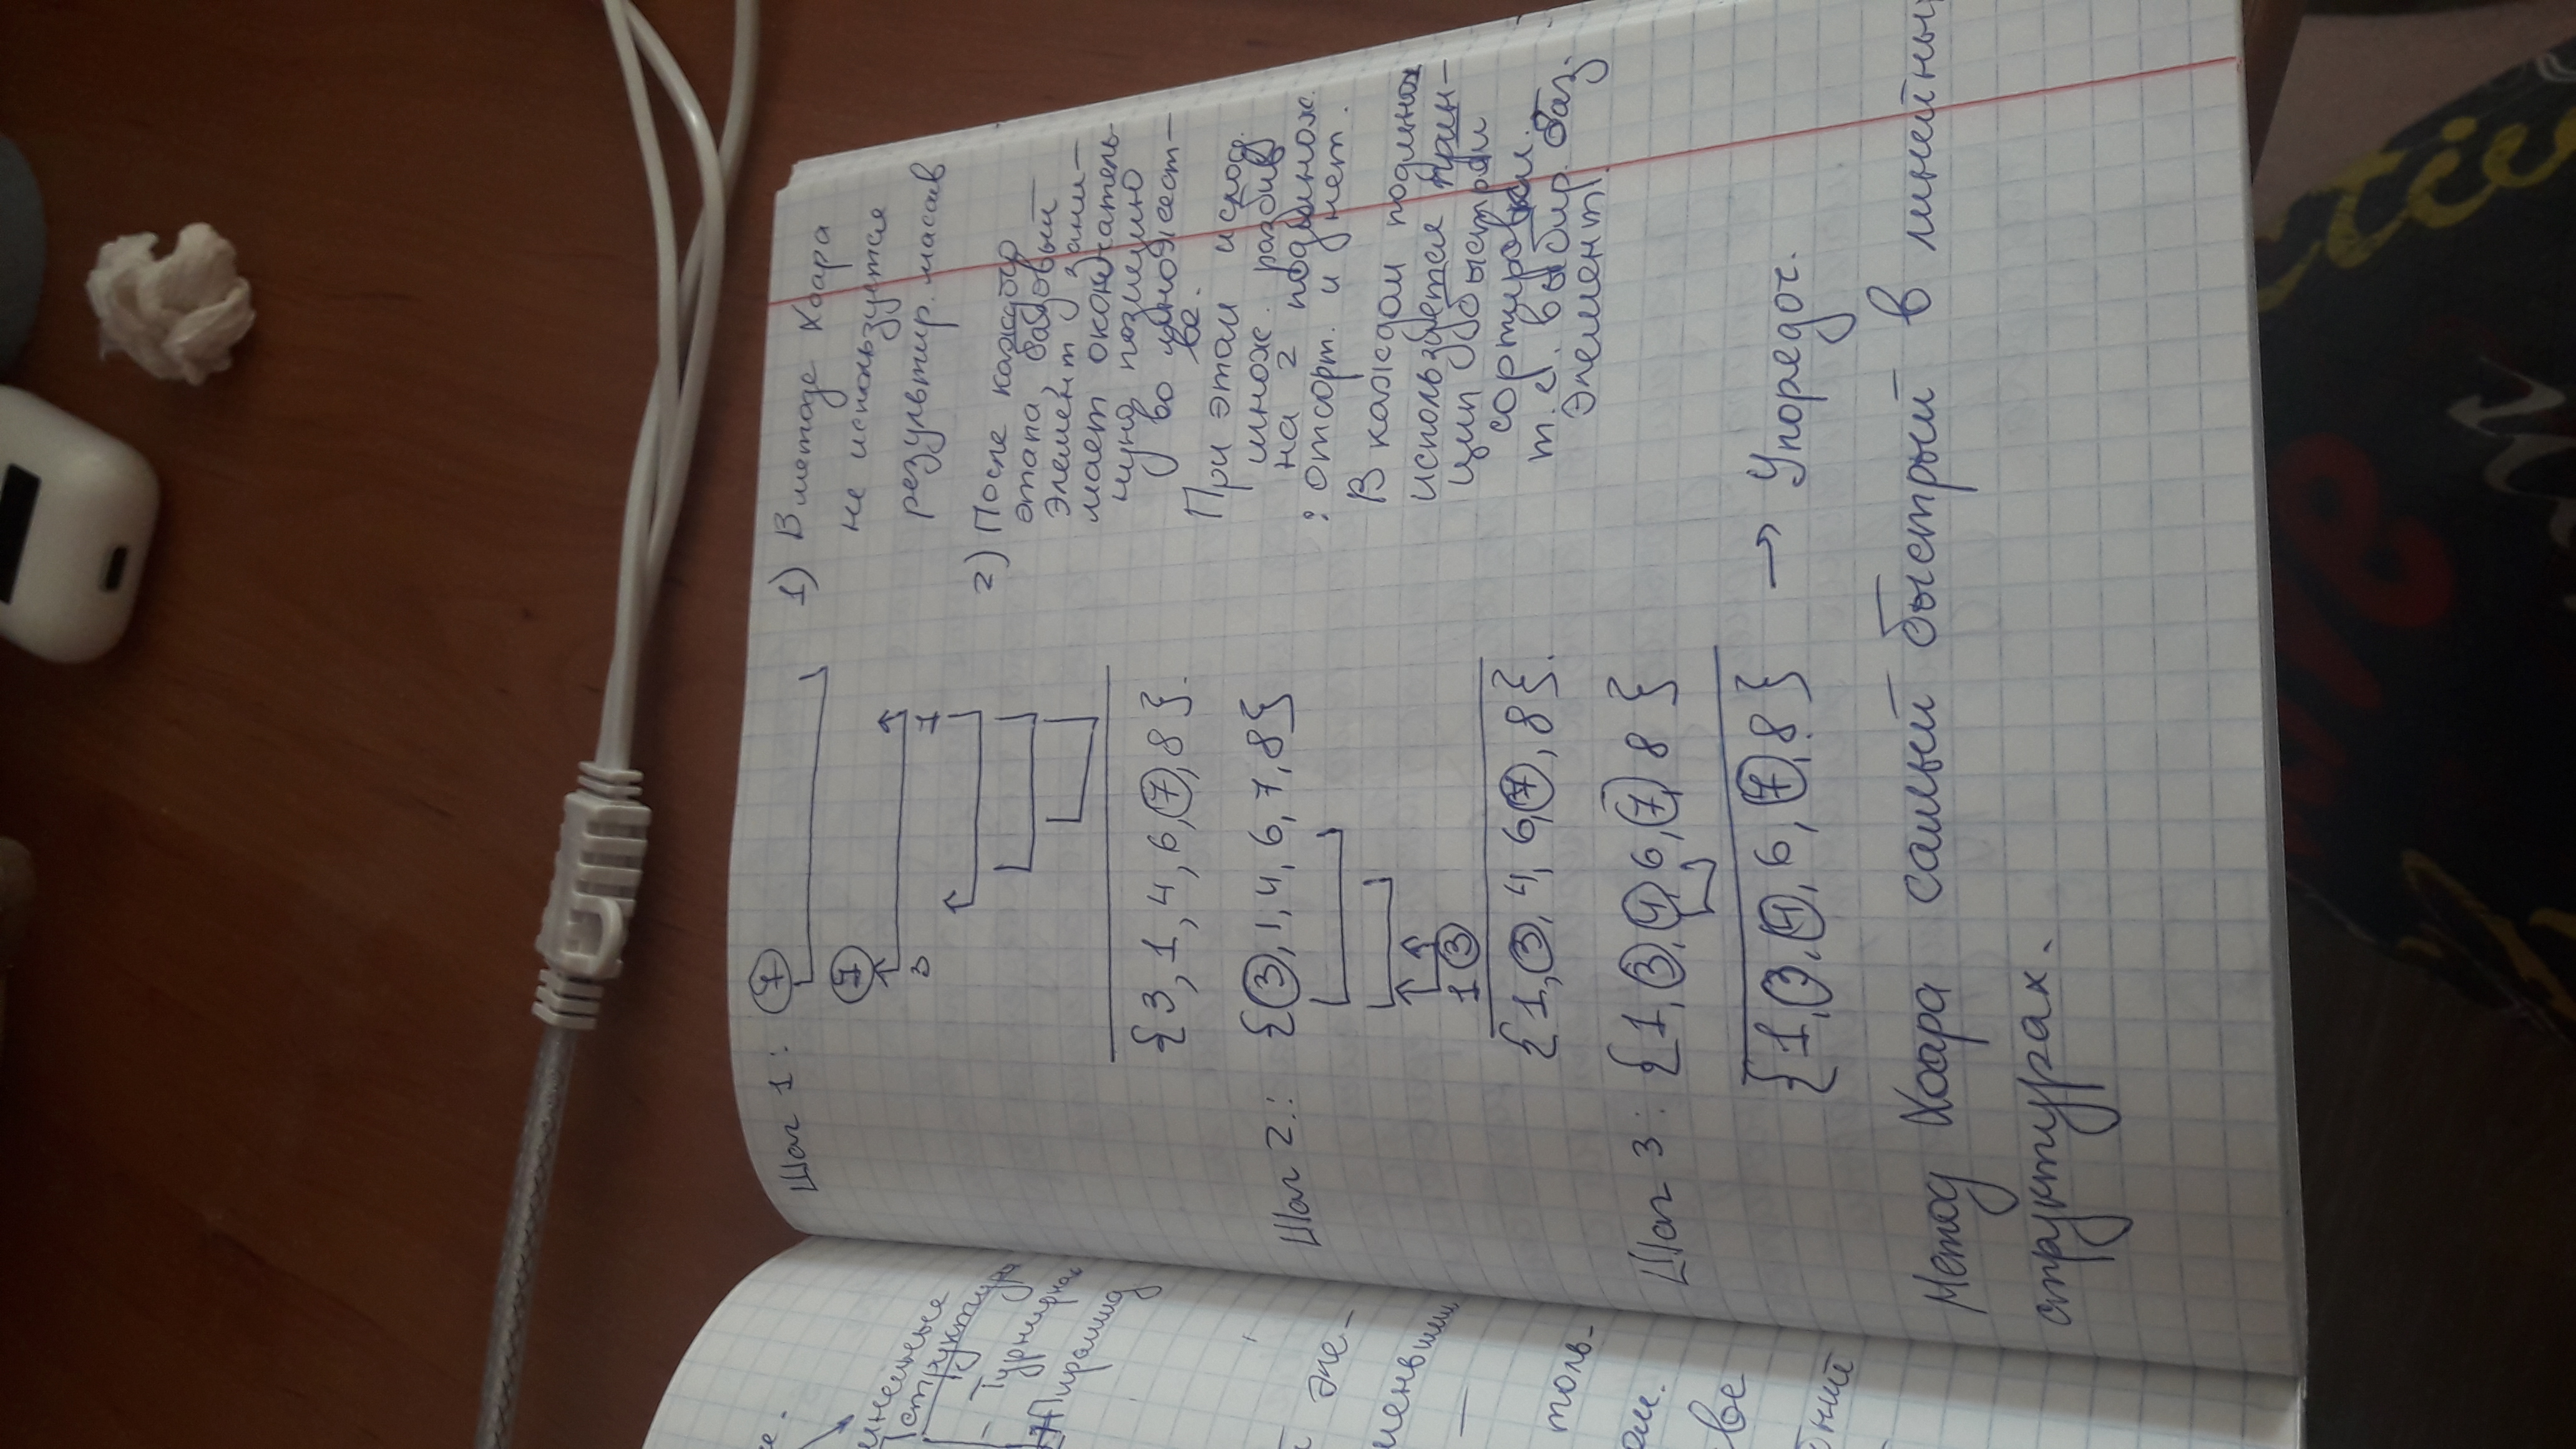 е.
инейные
структура
- Турнирная
Пирамид
эле-
меньшим
—
толь-
ом.
ве
Шаг 1: 7
7
3 7
{3, 1, 4, 6, 7, 8}.
Шаг 2.: {3, 1, 4, 6, 7, 8}
1 3
{1, 3, 4, 6, 7, 8}.
Шаг 3: {1, 3, 4, 6, 7, 8}
{1, 3, 4, 6, 7, 8} → Упорядоч.
1) В методе Хоара
не используется
результир. масив
2) После каждого
этапа, базовый
элемент зани-
мает окончатель-
ную позицию
во множест-
ве.
При этом исход.
множ. разбив
на 2 подмнож.
: отсорт. и нет.
В каждом подмнож
используется прин-
цип быстрой
сортировки.
т.е. выбир. баз.
Элемент.
Метод Хоара самый быстрый в линейных
структурах.